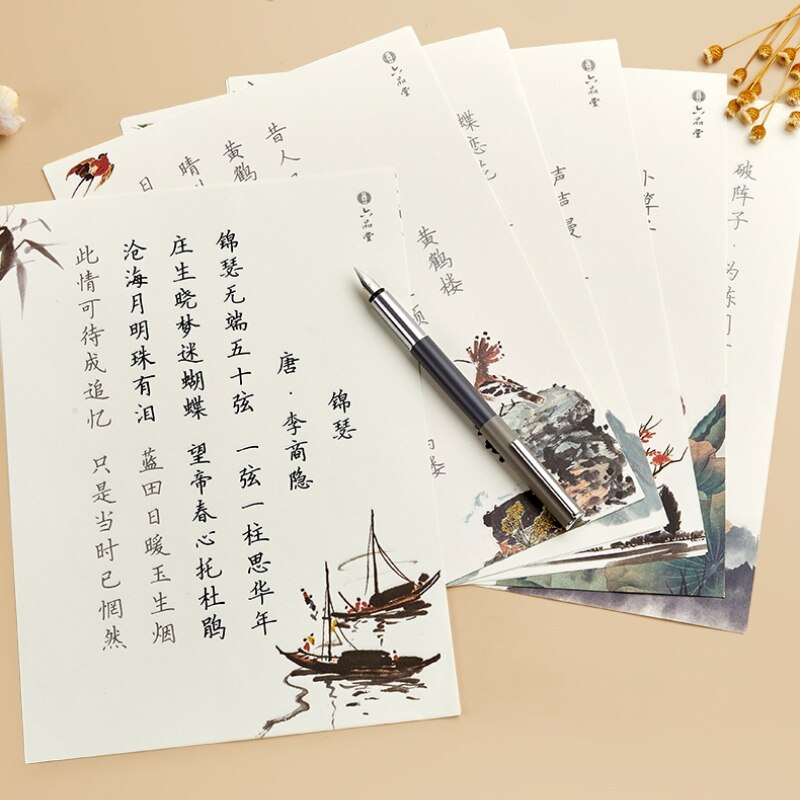 六品堂
锦瑟
唐·李商隐
锦瑟无端五十弦 一弦一柱思华年
庄生晓梦迷蝴蝶 望帝春心托杜鹃
沧海月明珠有泪 蓝田日暖玉生烟
此情可待成追忆 只是当时已惘然
六品堂
黄鹤楼
昔人
黄鹤
晴
日
蝶恋花
六品堂
声声慢
六品堂
破阵子·为陈同